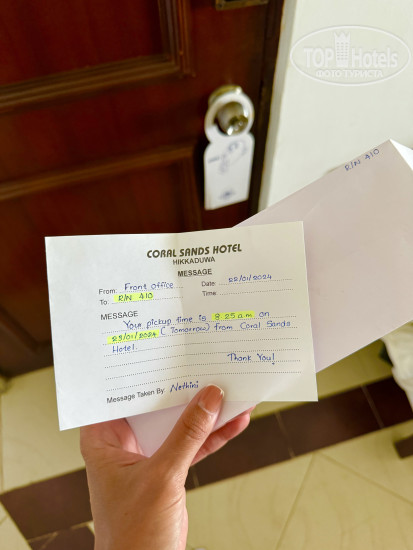 TOPHotels
ФОТО ТУРИСТА
R/N 410
CORAL SANDS HOTEL
HIKKADUWA
MESSAGE
From: Front office Date: 22/01/2024
To: R/N 410 Time:
MESSAGE
Your pickup time is 8.25 a.m on
23/01/2024 (Tomorrow) from Coral Sands
Hotel.
Thank You!
Message Taken By Nethini